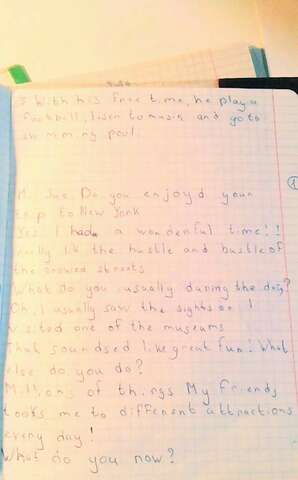 3 With his free time, he play a
football, lisen to musik and go to
swimming poul.
Hi, Sue. Do you enjoyd your
trip to New York
Yes! I hada a wonderful time!!
really lik the hustle and bustle of
the crowed streets
What do you usually during the day?
Oh, I usually saw the sights or I
visited one of the museums
That soundsed like great fun! What
else do you do?
Millions of things My friends
tooks me to different attractions
every day!
What do you now?
1